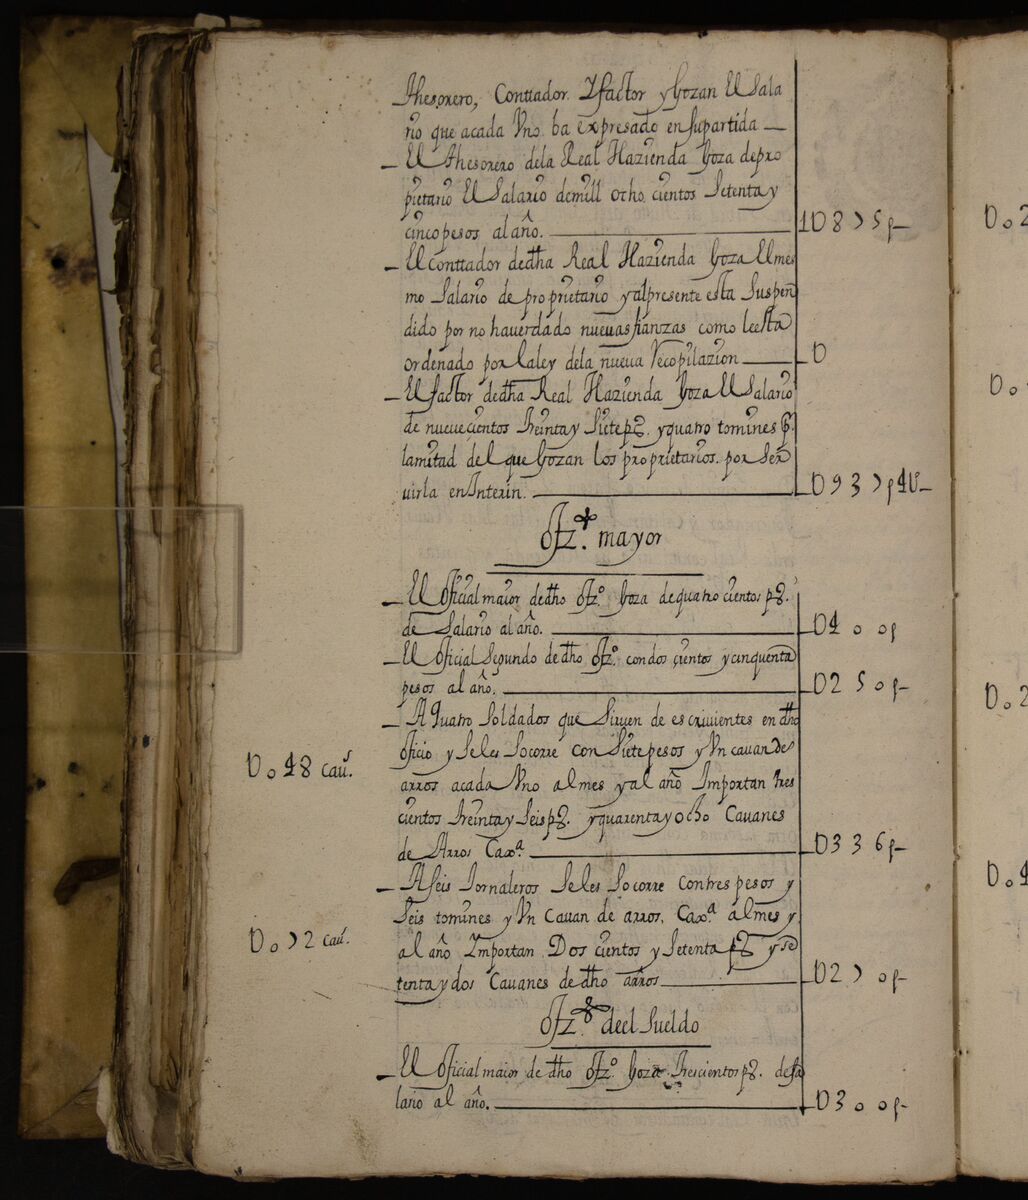 Thesorero, Conttador. Yfactor y Gozan El Sala
rio que acada Vno. ba expresado ensupartida
El Thesorero dela Real Hazienda Goza depro
pietario El Salario demill ocho cientos Setenta y
cinco pesos al año. 1U875p
El Conttador dedha Real Hazienda Goza Elmes
mo Salario de proprietario yalpresente esta Suspen
dido por no hauerdado nueuasfianzas como leesta
ordenado por laley dela nueua Recopilazion U
El factor dedha Real Hazienda Goza El Salario
de nueuecientos Treintay Sietepˢ. yquatro tomines pʳ.
lamitad del que Gozan los proprietarios. por Ser
uirla enInterin. U937p4t
Ofzº. mayor
El Oficial maior dedho Ofzº. Goza dequatro cientos pˢ.
de Salario al año. U400p
El oficial Segundo de dho Ofzº. condos cientos ycinquenta
pesos al año. U250p
A Quatro Soldados que Siruen de escriuientes en dho
oficio y Seles Socorre con Siete pesos y Vn cauan de
U048 cauˢ.
arros acada Vno al mes yal año Importan tres
cientos Treintay Seis pˢ. yquarentayocho Cauanes
de Arros Caxª. U336p
A Seis Jornaleros Seles Socorre contres pesos y
Seis tomines y Vn Cauan de arros. Caxª. al mes y
U072 cauˢ.
al año Ymportan Dos cientos y Setenta pˢ. yse
tentaydos Cauanes de dho arros U270p
Ofzº. deel Sueldo
El Oficial maior de dho Ofzº. Goza Trescientos pˢ. desa
lario al año. U300p